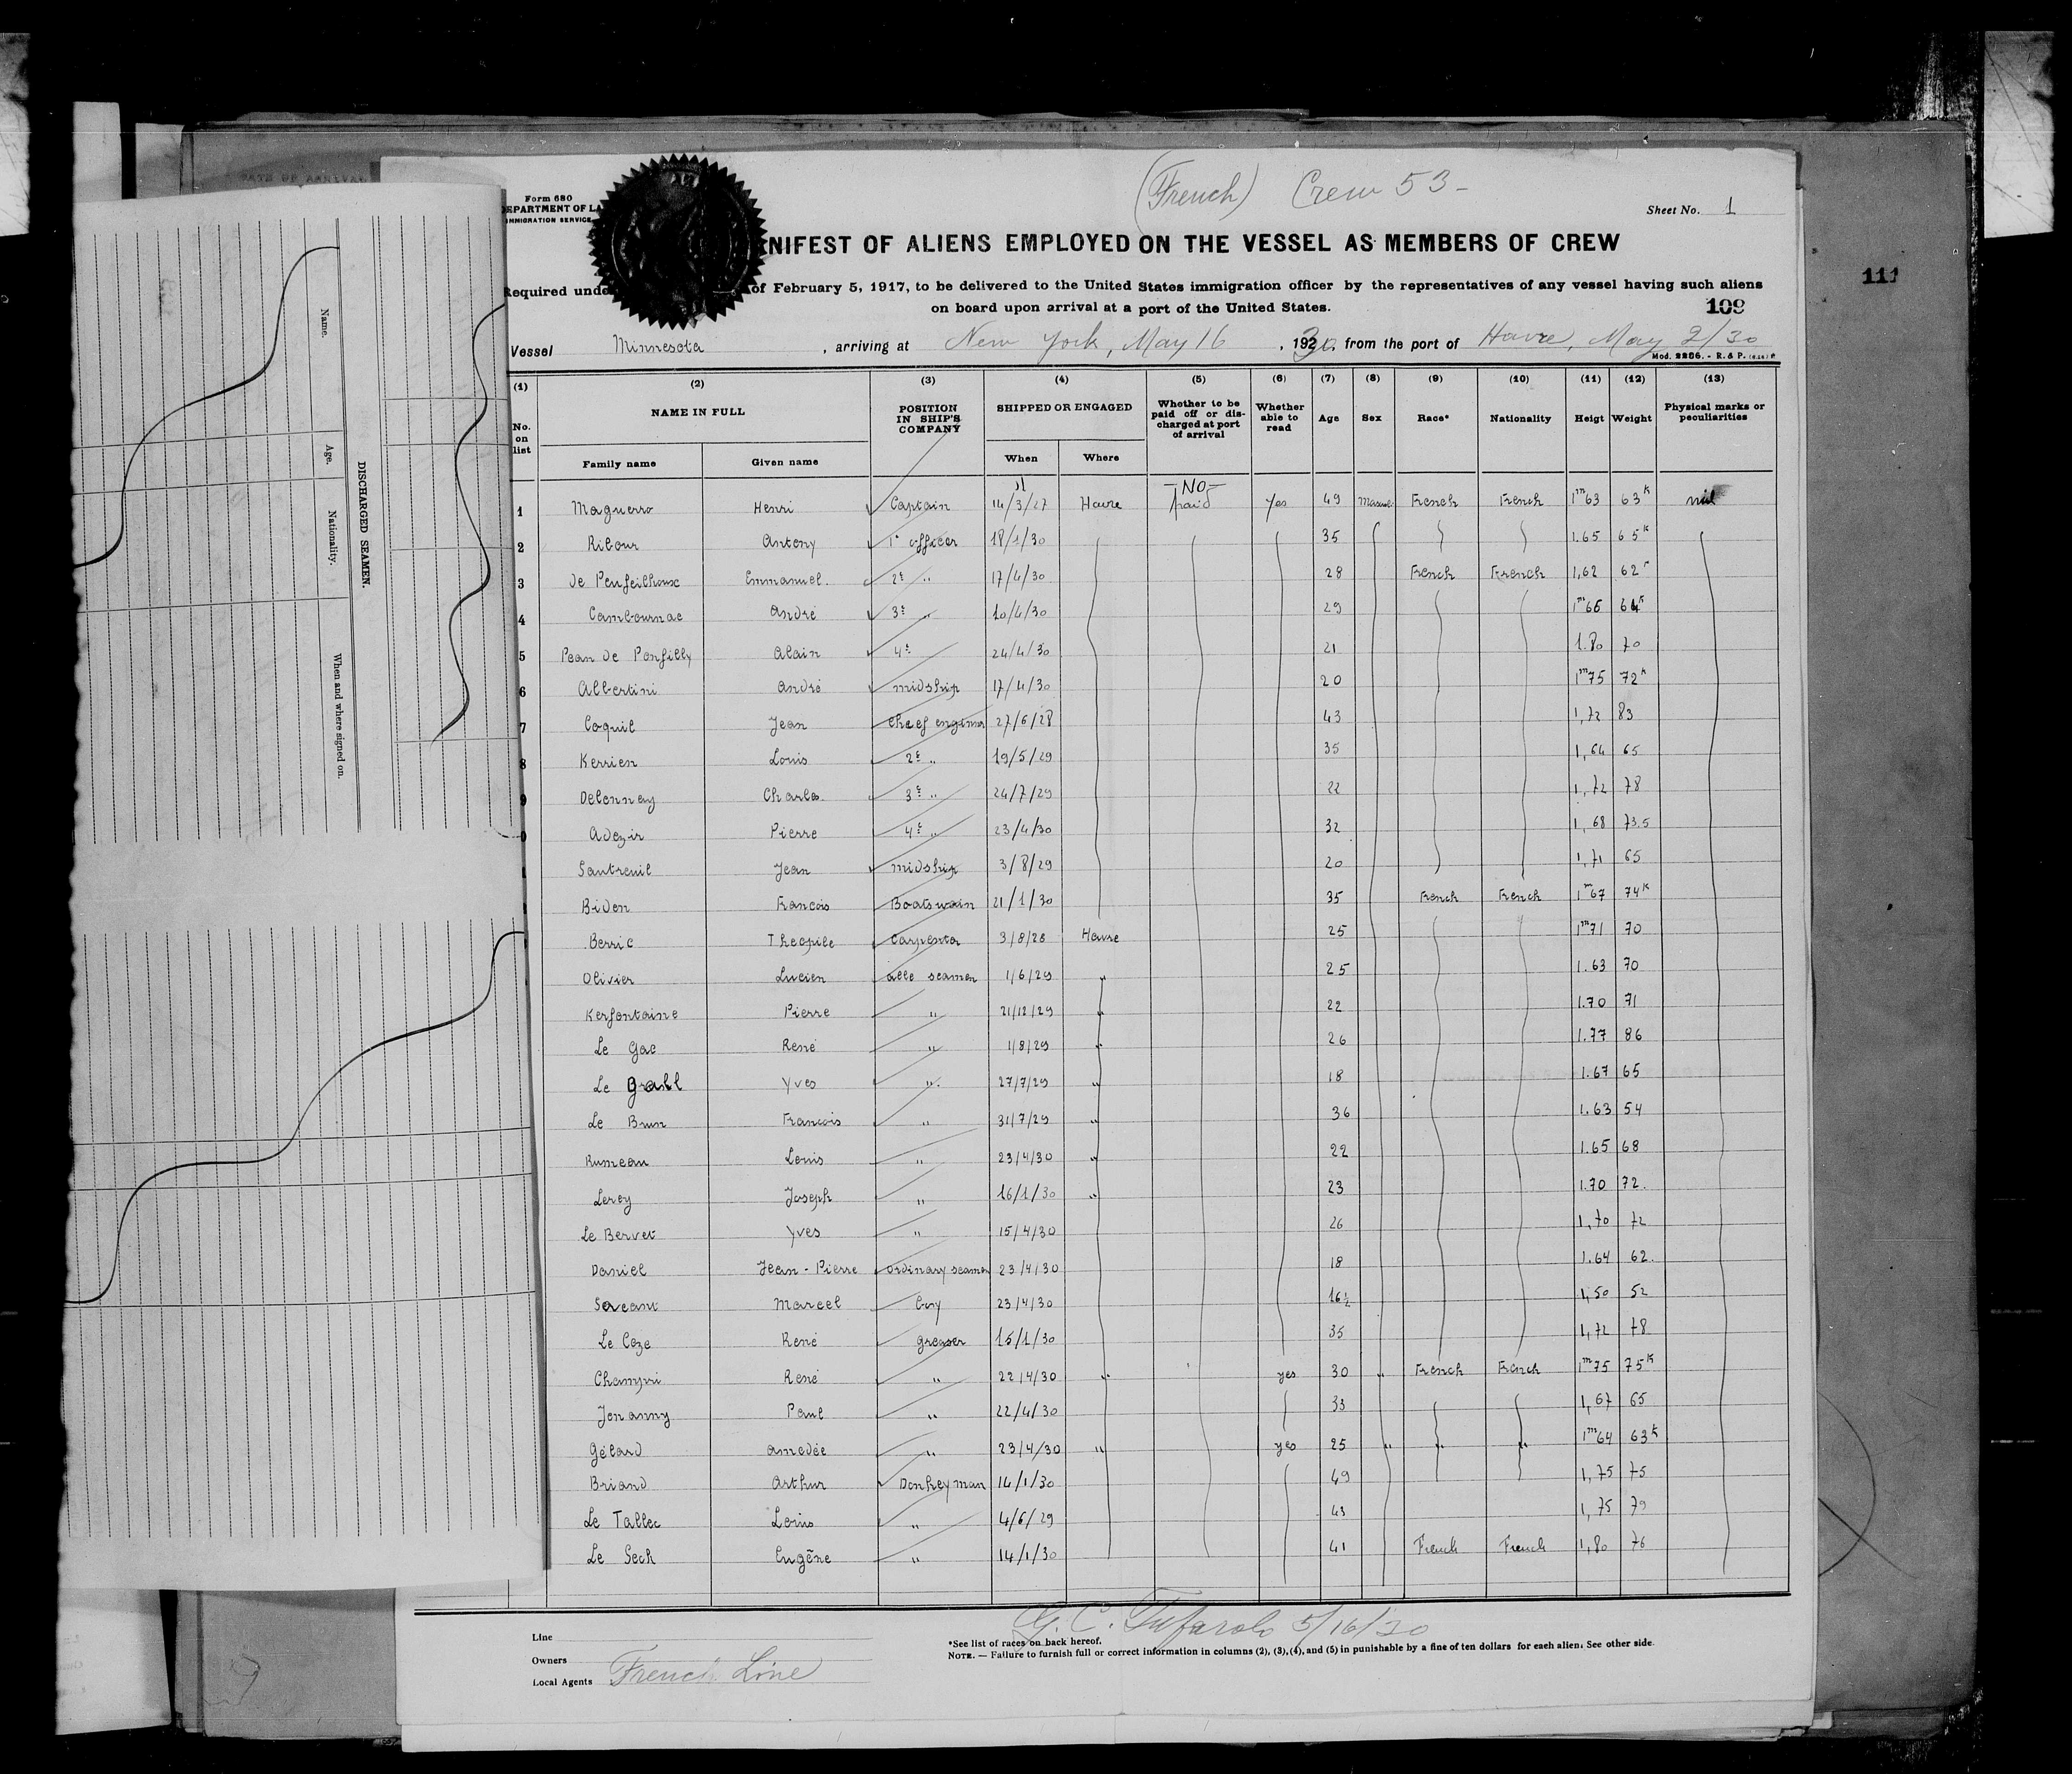 (French) Crew 53-
Form 680
DEPARTMENT OF LA
IMMIGRATION SERVICE
Sheet No. 1
NIFEST OF ALIENS EMPLOYED ON THE VESSEL AS MEMBERS OF CREW
111
Required unde of February 5, 1917, to be delivered to the United States immigration officer by the representatives of any vessel having such aliens
on board upon arrival at a port of the United States.
109
Vessel Minnesota , arriving at New York, May 16 , 1930, from the port of Havre, May 2/30
Mod. 2206. - R. & P.
(1) (2) (3) (4) (5) (6) (7) (8) (9) (10) (11) (12) (13)
No. on list NAME IN FULL Family name Given name POSITION IN SHIP'S COMPANY SHIPPED OR ENGAGED When Where Whether to be paid off or dis-charged at port of arrival Whether able to read Age Sex Race* Nationality Heigt Weight Physical marks or peculiarities
1 Maguerro Henri Captain 14/3/27 Havre -NO- paid Yes 49 French French 1m63 63k nil
2 Ribour Antony 1r officer 18/1/30 35 1.65 65k
3 de Penfeilhoux Emmanuel. 2e " 17/4/30 28 French French 1,62 62k
4 Cambournac André 3e " 10/4/30 29 1m66 64k
5 Pean de Ponfilly Alain 4e 24/4/30 21 1.80 70
6 Albertini André midship 17/4/30 20 1m75 72k
7 Coquil Jean Cheef engineer 27/6/28 43 1,72 83
8 Kerrien Louis 2e " 19/5/29 35 1,64 65
9 Delonney Charles 3e " 24/7/29 22 1,72 78
0 Adezir Pierre 4e " 23/4/30 32 1,68 73.5
Sautreuil Jean midship 3/8/29 20 1,71 65
Biden Francois Boatswain 21/1/30 35 French French 1m67 74k
Berric Theopile Carpenter 3/8/28 Havre 25 1m71 70
Olivier Lucien able seamen 1/6/29 " 25 1.63 70
Kerfontaine Pierre " 21/12/29 " 22 1.70 71
Le Gac René " 1/8/29 " 26 1.77 86
Le Grall Yves " 27/7/29 " 18 1.67 65
Le Brun Francois " 31/7/29 " 36 1.63 54
Rumeau Louis " 23/4/30 " 22 1.65 68
Leroy Joseph " 16/1/30 " 23 1.70 72.
Le Bervet Yves " 15/4/30 26 1,70 72
Daniel Jean-Pierre ordinary seamen 23/4/30 18 1.64 62.
Marcel boy 23/4/30 16½ 1,50 52
Le Coze René greaser 15/1/30 35 1,72 78
Champri René " 22/4/30 " yes 30 " French French 1m75 75k
Jonanny Paul " 22/4/30 33 1,67 65
Gélard Amedée " 23/4/30 " yes 25 " " " 1m64 63k
Briand Arthur Donkeyman 14/1/30 49 1,75 75
Le Tallec Louis " 4/6/29 43 1,75 79
Le Sech Eugène " 14/1/30 41 French French 1,80 76
Line
Owners
Local Agents French Line
G. C. Tufarolo 5/16/30
*See list of races on back hereof.
NOTE. — Failure to furnish full or correct information in columns (2), (3), (4), and (5) in punishable by a fine of ten dollars for each alien. See other side.
DISCHARGED SEAMEN.
Name.
Age.
Nationality.
When and where signed on.